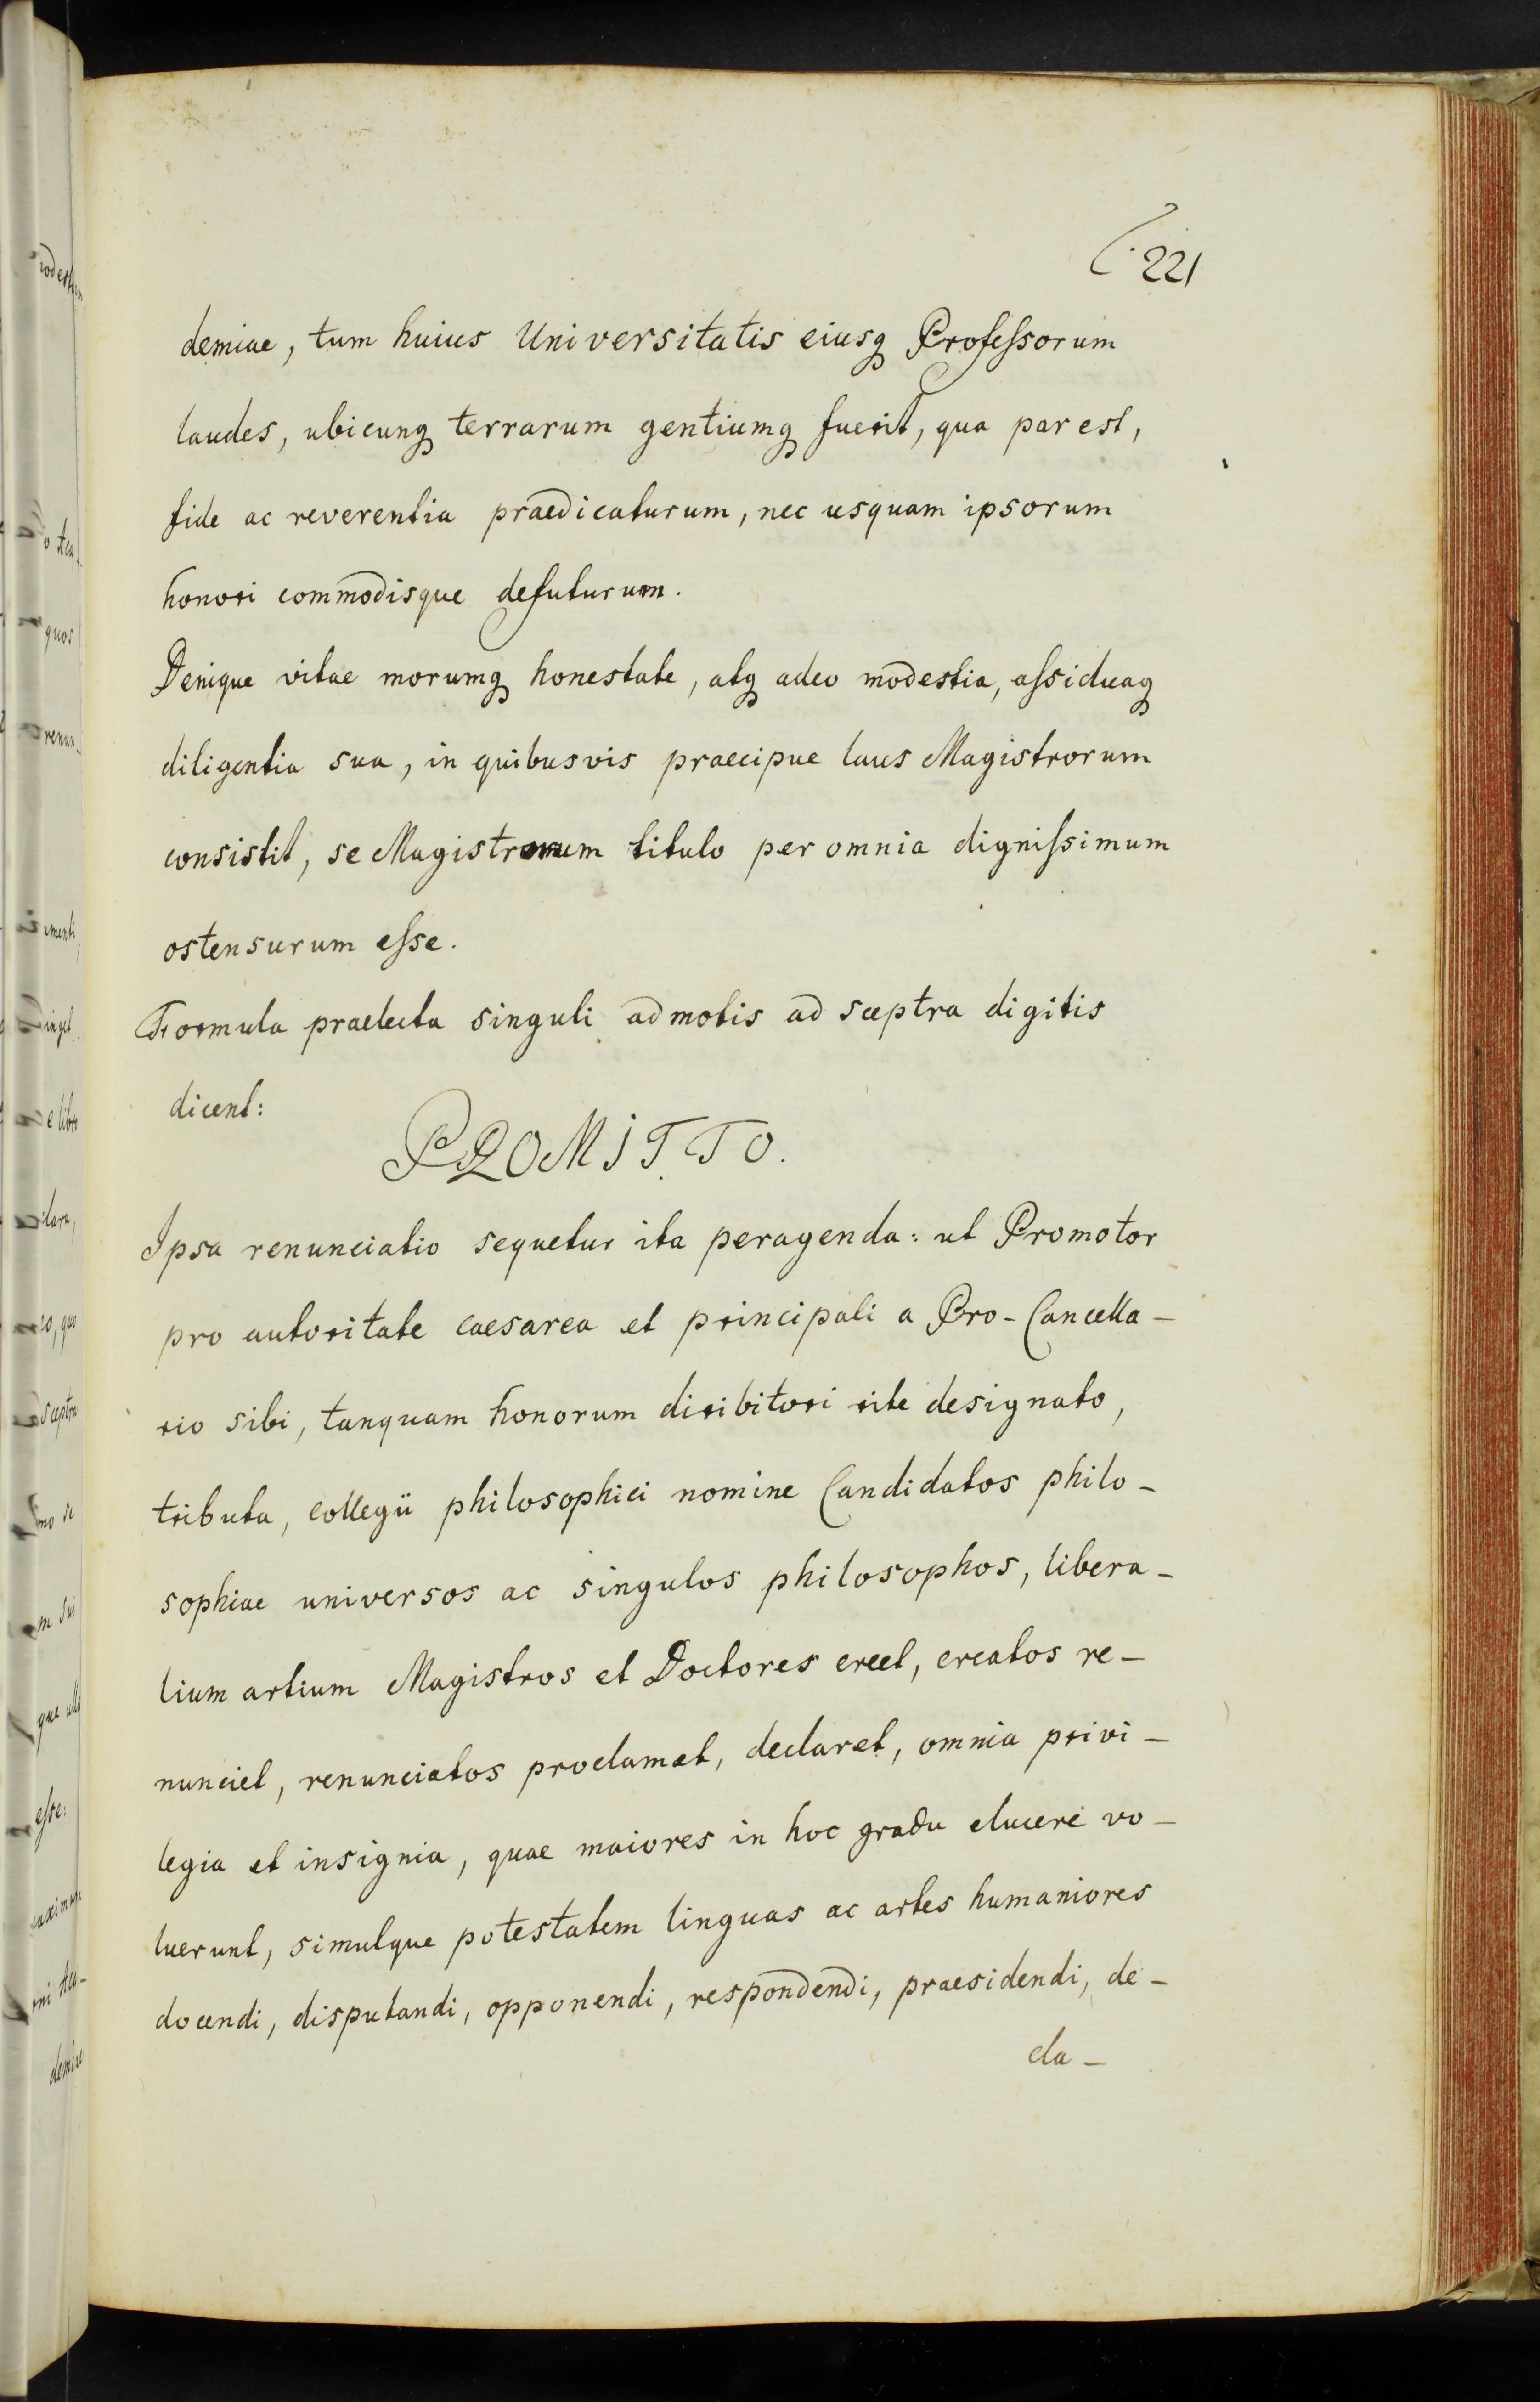 221
demiae, tum huius Universitatis eiusq Professorum
laudes, ubicunq terrarum gentiumq fuerit, qua par est,
fide ac reverentia praedicaturum, nec usquam ipsorum
honori commodisque defuturum.
Denique vitae morumq honestate, atq adeo modestia, assiduaq
diligentia sua, in quibusvis praecipue laus Magistrorum
consistit, se Magistrorum titulo per omnia dignissimum
ostensurum esse.
Formula praelecta singuli admotis ad sceptra digitis
dicent:
PROMITTO.
Ipsa renunciatio sequetur ita peragenda: ut Promotor
pro autoritate caesarea et principali a Pro-Cancella-
rio sibi, tanquam honorum diribitori rite designato,
tributa, collegii philosophici nomine Candidatos philo-
sophiae universos ac singulos philosophos, libera-
lium artium Magistros et Doctores creet, creatos re-
nunciet, renunciatos proclamet, declaret, omnia privi-
legia et insignia, quae maiores in hoc gradu elucere vo-
luerunt, simulque potestatem linguas ac artes humaniores
docendi, disputandi, opponendi, respondendi, praesidendi, de-
cla-